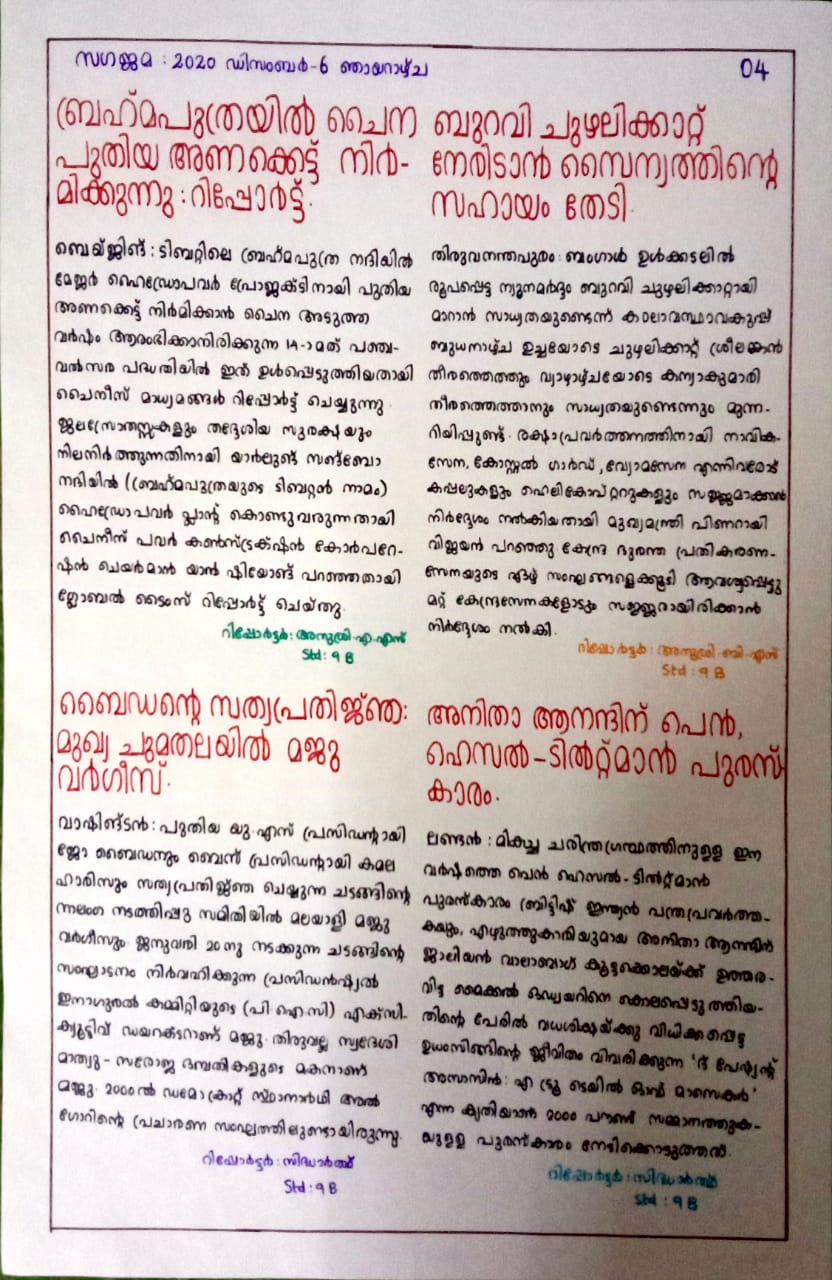 സഗജമ : 2020 ഡിസംബർ-6 ഞായറാഴ്ച
04
ബ്രഹ്മപുത്രയിൽ ചൈന
പുതിയ അണക്കെട്ട് നിർ-
മിക്കുന്നു : റിപ്പോർട്ട്.
ബെയ്ജിങ്: ടിബറ്റിലെ ബ്രഹ്മപുത്ര നദിയിൽ
മേജർ ഹൈഡ്രോപവർ പ്രോജക്ടിനായി പുതിയ
അണക്കെട്ട് നിർമിക്കാൻ ചൈന അടുത്ത
വർഷം ആരംഭിക്കാനിരിക്കുന്ന 14-ാമത് പഞ്ച-
വൽസര പദ്ധതിയിൽ ഇത് ഉൾപ്പെടുത്തിയതായി
ചൈനീസ് മാധ്യമങ്ങൾ റിപ്പോർട്ട് ചെയ്യുന്നു.
ജലസ്രോതസ്സുകളും തദ്ദേശിയ സുരക്ഷയും
നിലനിർത്തുന്നതിനായി യാർലുങ് സങ്ബോ
നദിയിൽ ((ബ്രഹ്മപുത്രയുടെ ടിബറ്റൻ നാമം)
ഹൈഡ്രോപവർ പ്ലാന്റ് കൊണ്ടുവരുന്നതായി
ചൈനീസ് പവർ കൺസ്ട്രക്ഷൻ കോർപറേ-
ഷൻ ചെയർമാൻ യാൻ ഷിയോങ് പറഞ്ഞതായി
ഗ്ലോബൽ ടൈംസ് റിപ്പോർട്ട് ചെയ്തു.
റിപ്പോർട്ടർ: അനുശ്രീ.എ.എസ്
Std : 9 B
ബുറവി ചുഴലിക്കാറ്റ്
നേരിടാൻ സൈന്യത്തിന്റെ
സഹായം തേടി.
തിരുവനന്തപുരം: ബംഗാൾ ഉൾക്കടലിൽ
രൂപപ്പെട്ട ന്യൂനമർദ്ദം ബുറവി ചുഴലിക്കാറ്റായി
മാറാൻ സാധ്യതയുണ്ടെന്ന് കാലാവസ്ഥാവകുപ്പ്
ബുധനാഴ്ച ഉച്ചയോടെ ചുഴലിക്കാറ്റ് ശ്രീലങ്കൻ
തീരത്തെത്തും വ്യാഴാഴ്ചയോടെ കന്യാകുമാരി
തീരത്തെത്താനും സാധ്യതയുണ്ടെന്നും മുന്ന-
റിയിപ്പുണ്ട്. രക്ഷാപ്രവർത്തനത്തിനായി നാവിക-
സേന, കോസ്റ്റൽ ഗാർഡ്, വ്യോമസേന എന്നിവരോട്
കപ്പലുകളും ഹെലികോപ്റ്ററുകളും സജ്ജമാക്കാൻ
നിർദ്ദേശം നൽകിയതായി മുഖ്യമന്ത്രി പിണറായി
വിജയൻ പറഞ്ഞു. കേന്ദ്ര ദുരന്ത പ്രതികരണ-
സേനയുടെ ഏഴ് സംഘങ്ങളെക്കൂടി ആവശ്യപ്പെട്ടു
മറ്റ് കേന്ദ്രസേനകളോടും സജ്ജരായിരിക്കാൻ
നിർദ്ദേശം നൽകി.
റിപ്പോർട്ടർ: അനുശ്രീ.ബി.എസ്
Std : 9 B
ബൈഡന്റെ സത്യപ്രതിജ്ഞ:
മുഖ്യ ചുമതലയിൽ മജു
വർഗീസ്.
വാഷിങ്ടൻ: പുതിയ യു.എസ് പ്രസിഡന്റായി
ജോ ബൈഡനും വൈസ് പ്രസിഡന്റായി കമല
ഹാരിസും സത്യപ്രതിജ്ഞ ചെയ്യുന്ന ചടങ്ങിന്റെ
നാലംഗ നടത്തിപ്പു സമിതിയിൽ മലയാളി മജു
വർഗീസും. ജനുവരി 20നു നടക്കുന്ന ചടങ്ങിന്റെ
സംഘാടനം നിർവഹിക്കുന്ന പ്രസിഡൻഷ്യൽ
ഇനാഗുരൽ കമ്മിറ്റിയുടെ (പി.ഐ.സി) എക്സി-
ക്യൂട്ടിവ് ഡയറക്ടറാണ് മജു. തിരുവല്ല സ്വദേശി
മാത്യു - സരോജ ദമ്പതികളുടെ മകനാണ്
മജു. 2000ൽ ഡമോക്രാറ്റ് സ്ഥാനാർഥി അൽ
ഗോറിന്റെ പ്രചാരണ സംഘത്തിലുണ്ടായിരുന്നു.
റിപ്പോർട്ടർ: സിദ്ധാർത്ഥ്
Std : 9 B
അനിതാ ആനന്ദിന് പെൻ,
ഹെസൽ-ടിൽറ്റ്മാൻ പുരസ്-
കാരം.
ലണ്ടൻ : മികച്ച ചരിത്രഗ്രന്ഥത്തിനുള്ള ഈ
വർഷത്തെ പെൻ ഹെസൽ- ടിൽറ്റ്മാൻ
പുരസ്കാരം ബ്രിട്ടിഷ് ഇന്ത്യൻ പത്രപ്രവർത്ത-
കയും, എഴുത്തുകാരിയുമായ അനിതാ ആനന്ദിന്
ജാലിയൻ വാലാബാഗ് കൂട്ടക്കൊലയ്ക്ക് ഉത്തര-
വിട്ട മൈക്കൽ ഒഡ്വയറിനെ കൊലപ്പെടുത്തിയ-
തിന്റെ പേരിൽ വധശിക്ഷയ്ക്കു വിധിക്കപ്പെട്ട
ഉധംസിങ്ങിന്റെ ജീവിതം വിവരിക്കുന്ന 'ദ് പേഷ്യന്റ്
അസാസിൻ: എ ട്രൂ ടെയിൽ ഓഫ് മാസെകർ'
എന്ന കൃതിയാണ് 2000 പൗണ്ട് സമ്മാനത്തുക-
യുള്ള പുരസ്കാരം നേടിക്കൊടുത്തത്.
റിപ്പോർട്ടർ: സിദ്ധാർത്ഥ്
Std : 9 B